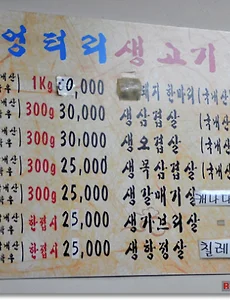 엉터리생고기
국내산 1Kg 60,000 돼지 한마리 (국내산
국내산 300g 30,000 생삼겹살 (국내산
국내산 300g 30,000 생오겹살 (국내산
국내산 300g 25,000 생목삼겹살 (국내산
국내산 300g 25,000 생갈매기살 캐나다
국내산 한접시 25,000 생가브리살
국내산 한접시 25,000 생항정살 칠레